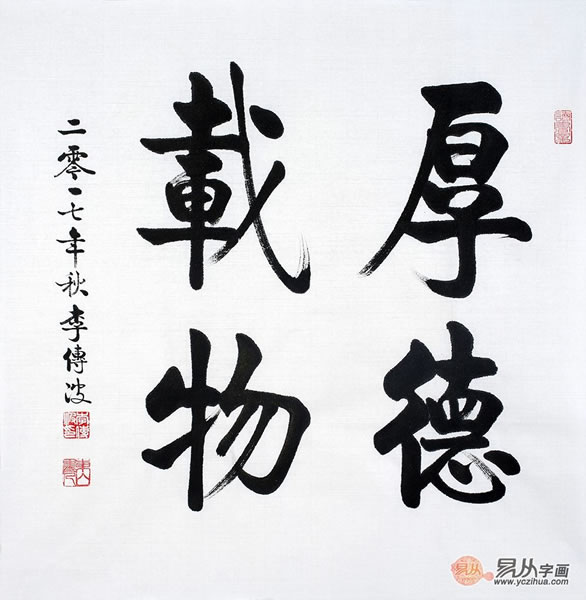 厚德
載物
二零一七年秋李傳波
易从
易从字画
www.yczihua.com